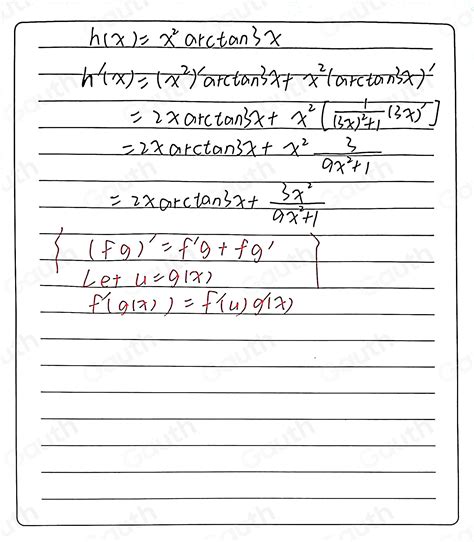 h(x) = x² arctan3x
h'(x) = (x²)'arctan3x + x²(arctan3x)'
= 2x arctan3x + x² [ 1/((3x)²+1) (3x)' ]
= 2x arctan3x + x² 3/(9x²+1)
= 2x arctan3x + 3x²/(9x²+1)
{ (fg)' = f'g + fg' }
Let u = g(x)
f'(g(x)) = f'(u) g'(x)
Gauth